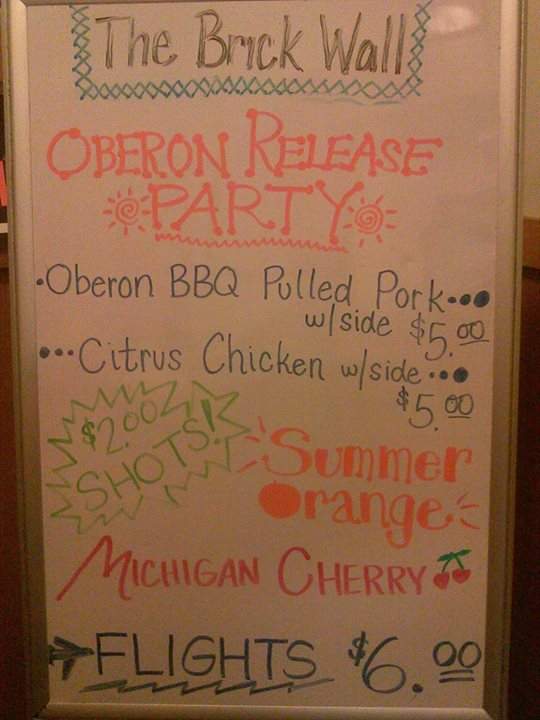 The Brick Wall
OBERON RELEASE
PARTY
·Oberon BBQ Pulled Pork...
w/side $5.00
...Citrus Chicken w/side...
$5.00
$2.00
SHOTS!
Summer
Orange
MICHIGAN CHERRY
FLIGHTS $6.00